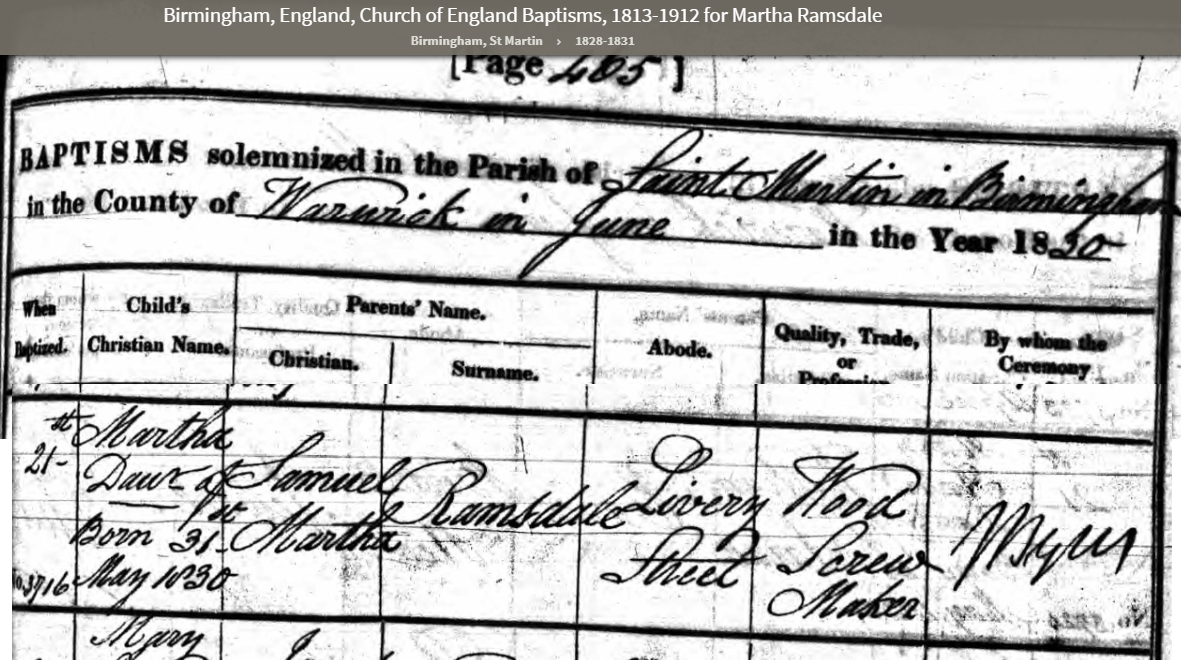 Birmingham, England, Church of England Baptisms, 1813-1912 for Martha Ramsdale
Birmingham, St Martin › 1828-1831
[Page 465]
BAPTISMS solemnized in the Parish of Saint Martin in Birmingham
in the County of Warwick in June in the Year 1830
When Baptized.
Child's Christian Name.
Parents' Name.
Christian.
Surname.
Abode.
Quality, Trade, or
By whom the Ceremony
21st
No. 3716
Martha
Daur of
Born 31st
May 1830
Samuel
Martha
Ramsdale
Livery
Street
Wood
Screw
Maker
Mary